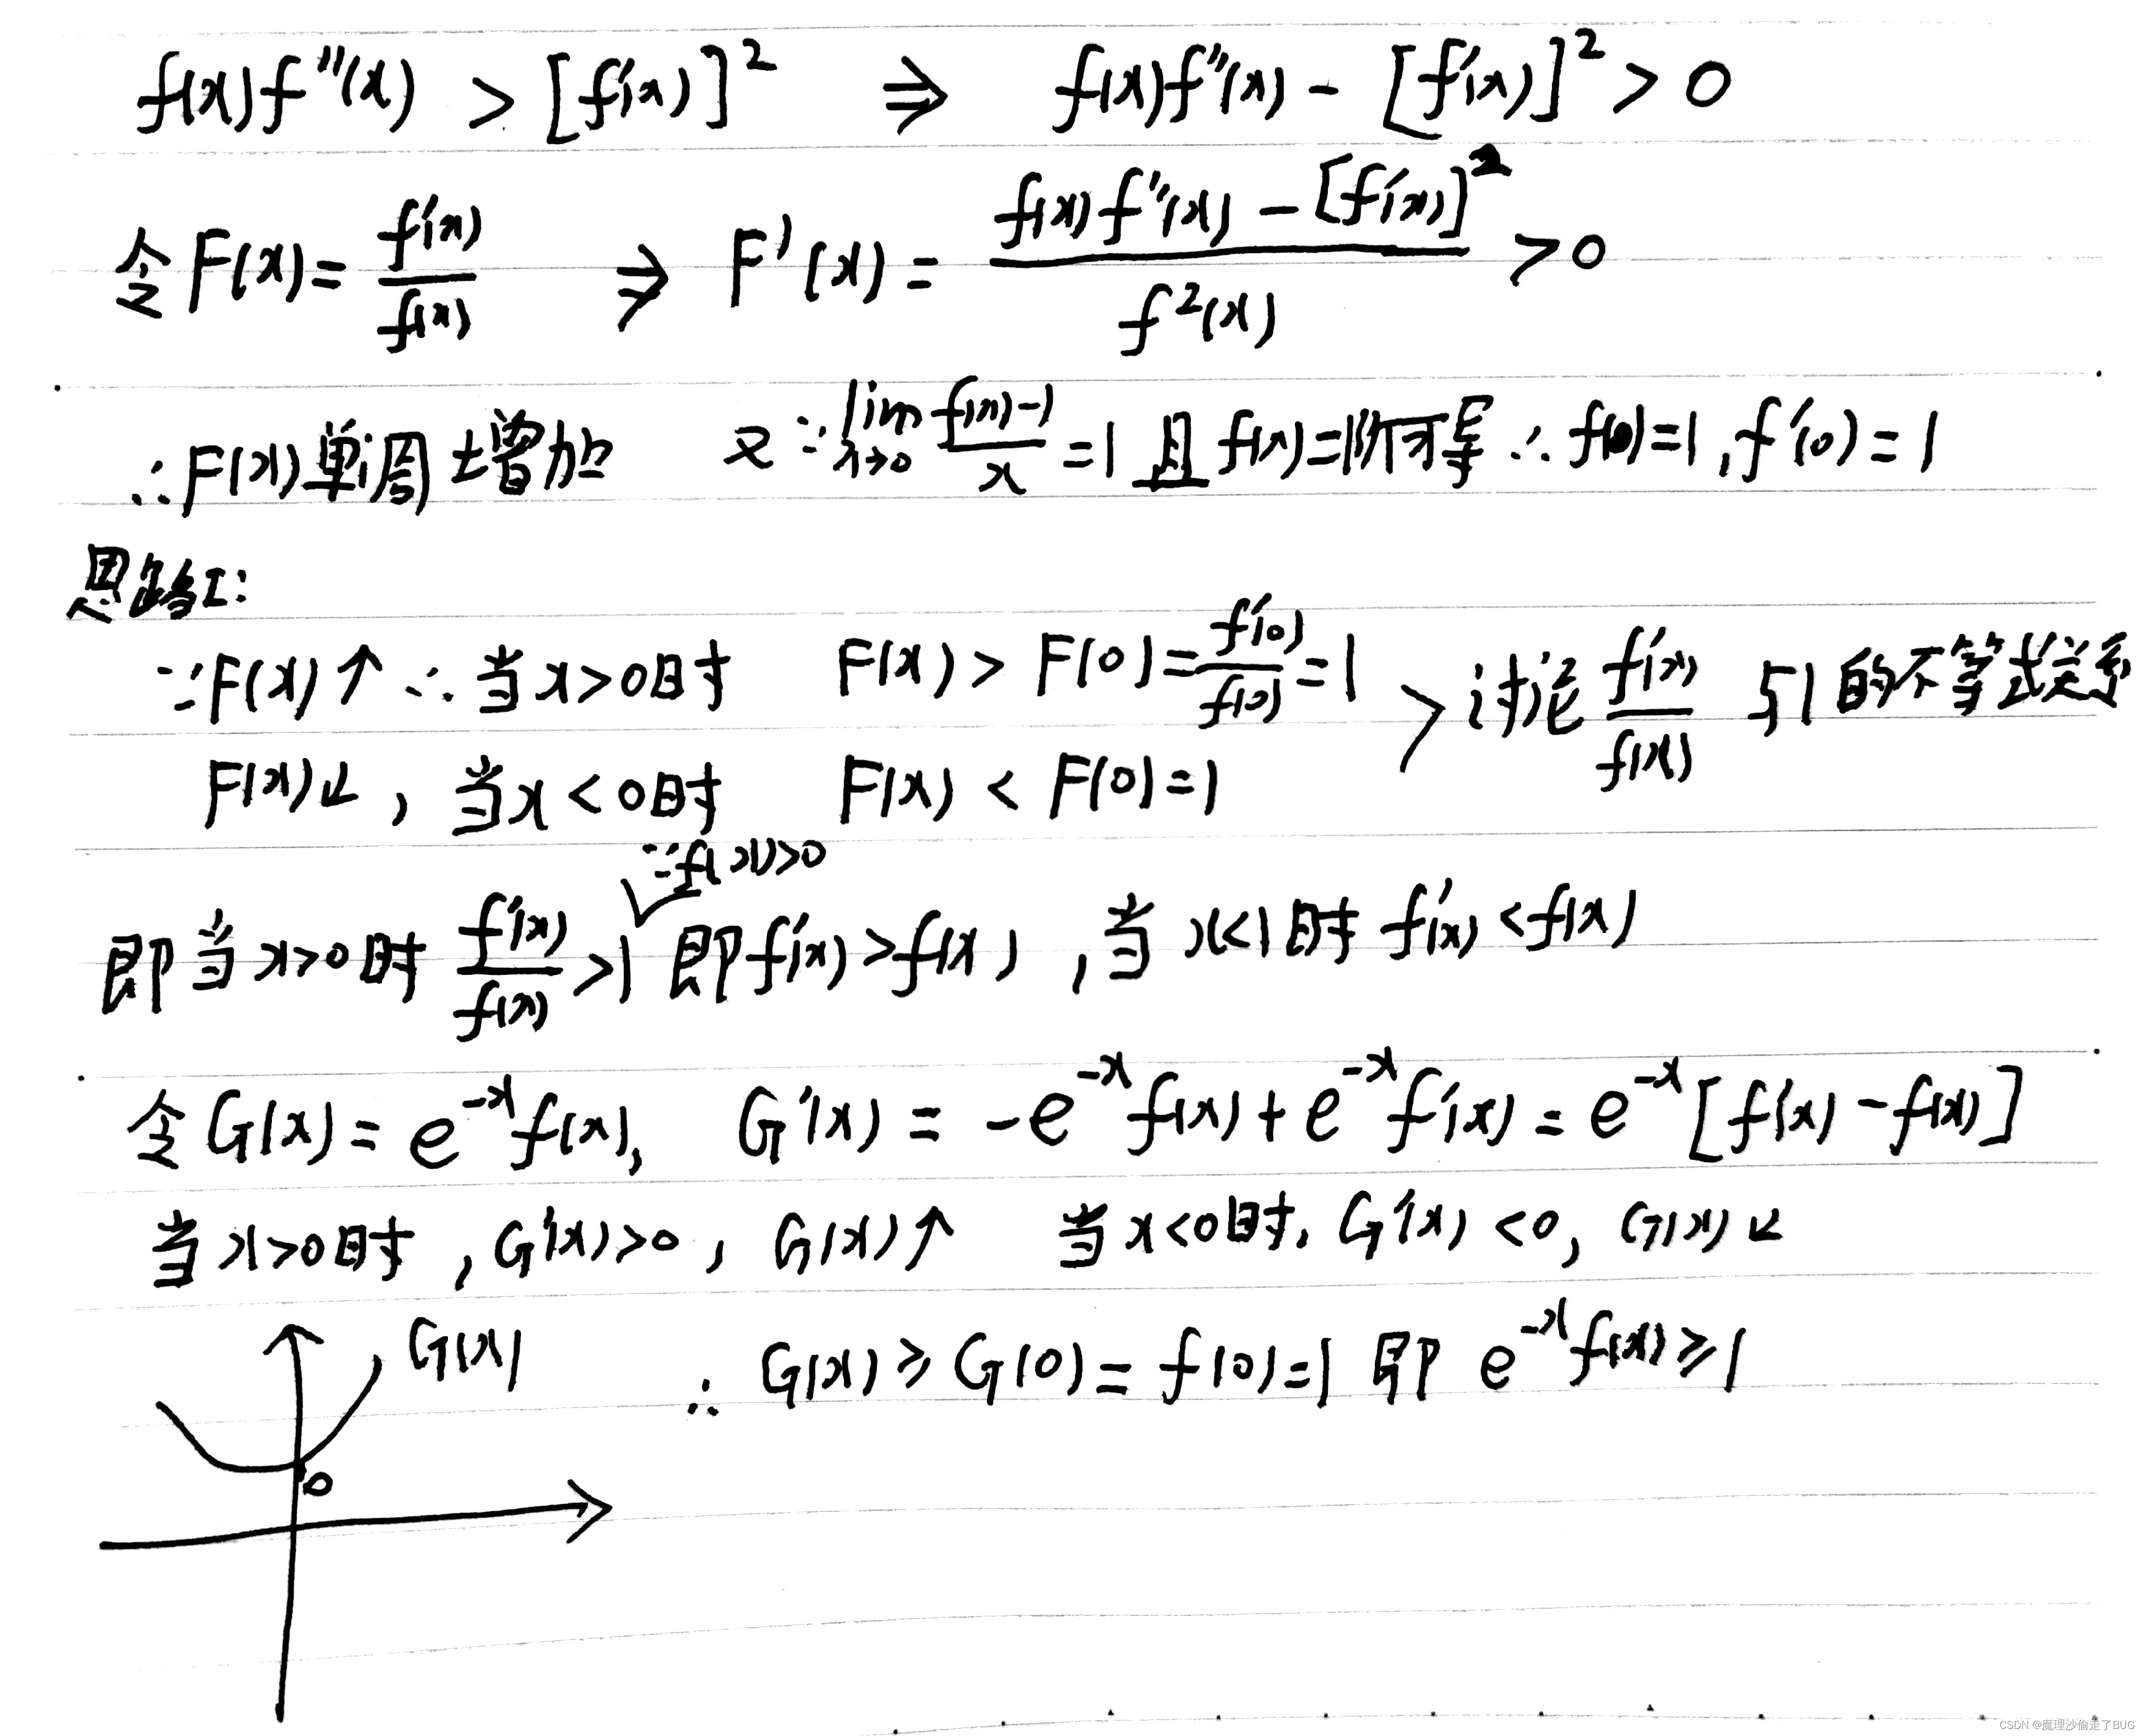 f(x)f''(x) > [f'(x)]² ⇒ f(x)f''(x) - [f'(x)]² > 0
令F(x)=f'(x)/f(x) ⇒ F'(x)=(f(x)f''(x)-[f'(x)]²)/f²(x) >0
∴F(x)单调增加 又∵lim x→0 (f(x)-1)/x=1 且f(x)二阶可导 ∴f(0)=1, f'(0)=1
思路I:
∵F(x)↑ ∴当x>0时 F(x) > F(0)=f'(0)/f(0)=1 > 讨论 f'(x)/f(x) 与1的不等式关系
F(x)↙, 当x<0时 F(x) < F(0)=1
∵f(x)>0
即当x>0时 f'(x)/f(x) >1 即f'(x)>f(x), 当x<1时 f'(x)<f(x)
令G(x)=e⁻ˣf(x), G'(x)=-e⁻ˣf(x)+e⁻ˣf'(x)=e⁻ˣ[f'(x)-f(x)]
当x>0时, G'(x)>0, G(x)↑ 当x<0时, G'(x)<0, G(x)↙
G(x)
∴ G(x)≥G(0)=f(0)=1 即 e⁻ˣf(x)≥1
0
CSDN @魔理沙偷走了BUG